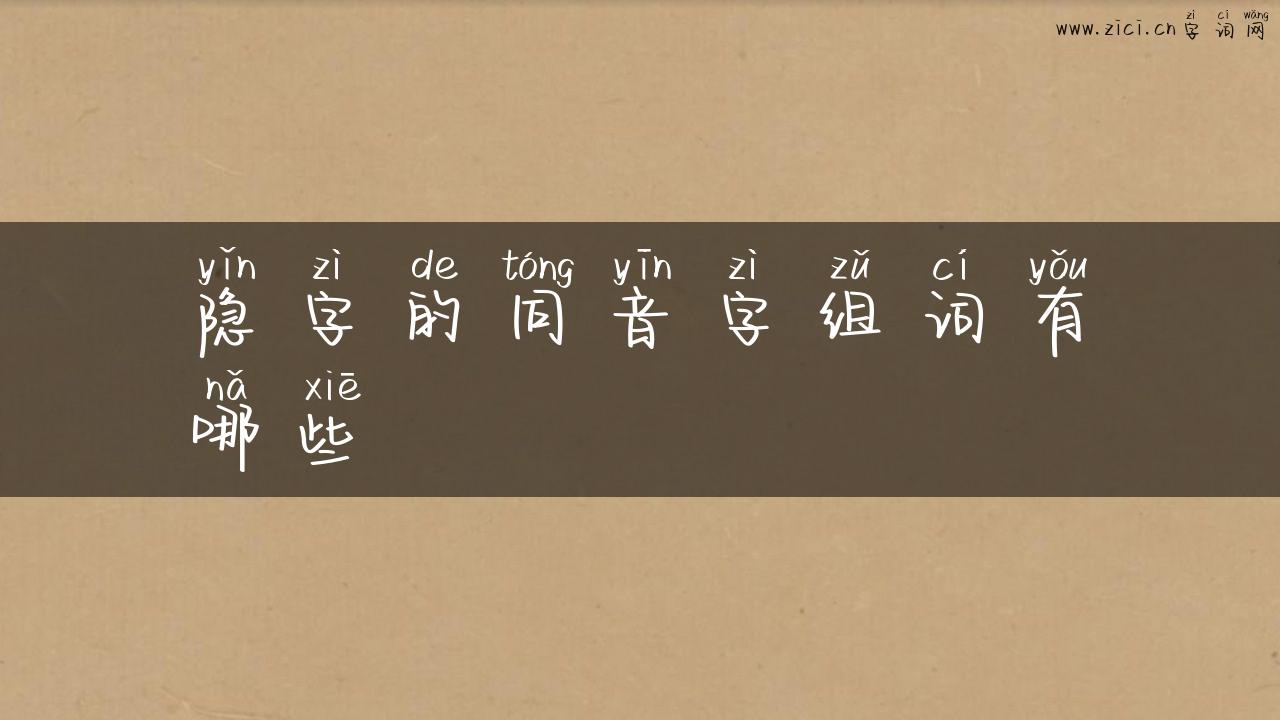 zì cí wǎng
www.zici.cn 字词网
yǐn zì de tóng yīn zì zǔ cí yǒu
隐字的同音字组词有
nǎ xiē
哪些